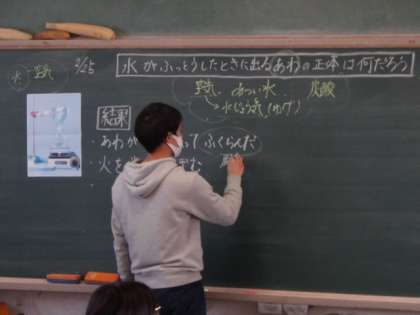 2/25 水がふっとうしたときに出るあわの正体は何だろう
水
空気 あつい水 炭酸
→水じょう気(ゆげ)
結果
・あわが って ふくらんだ
・火を む